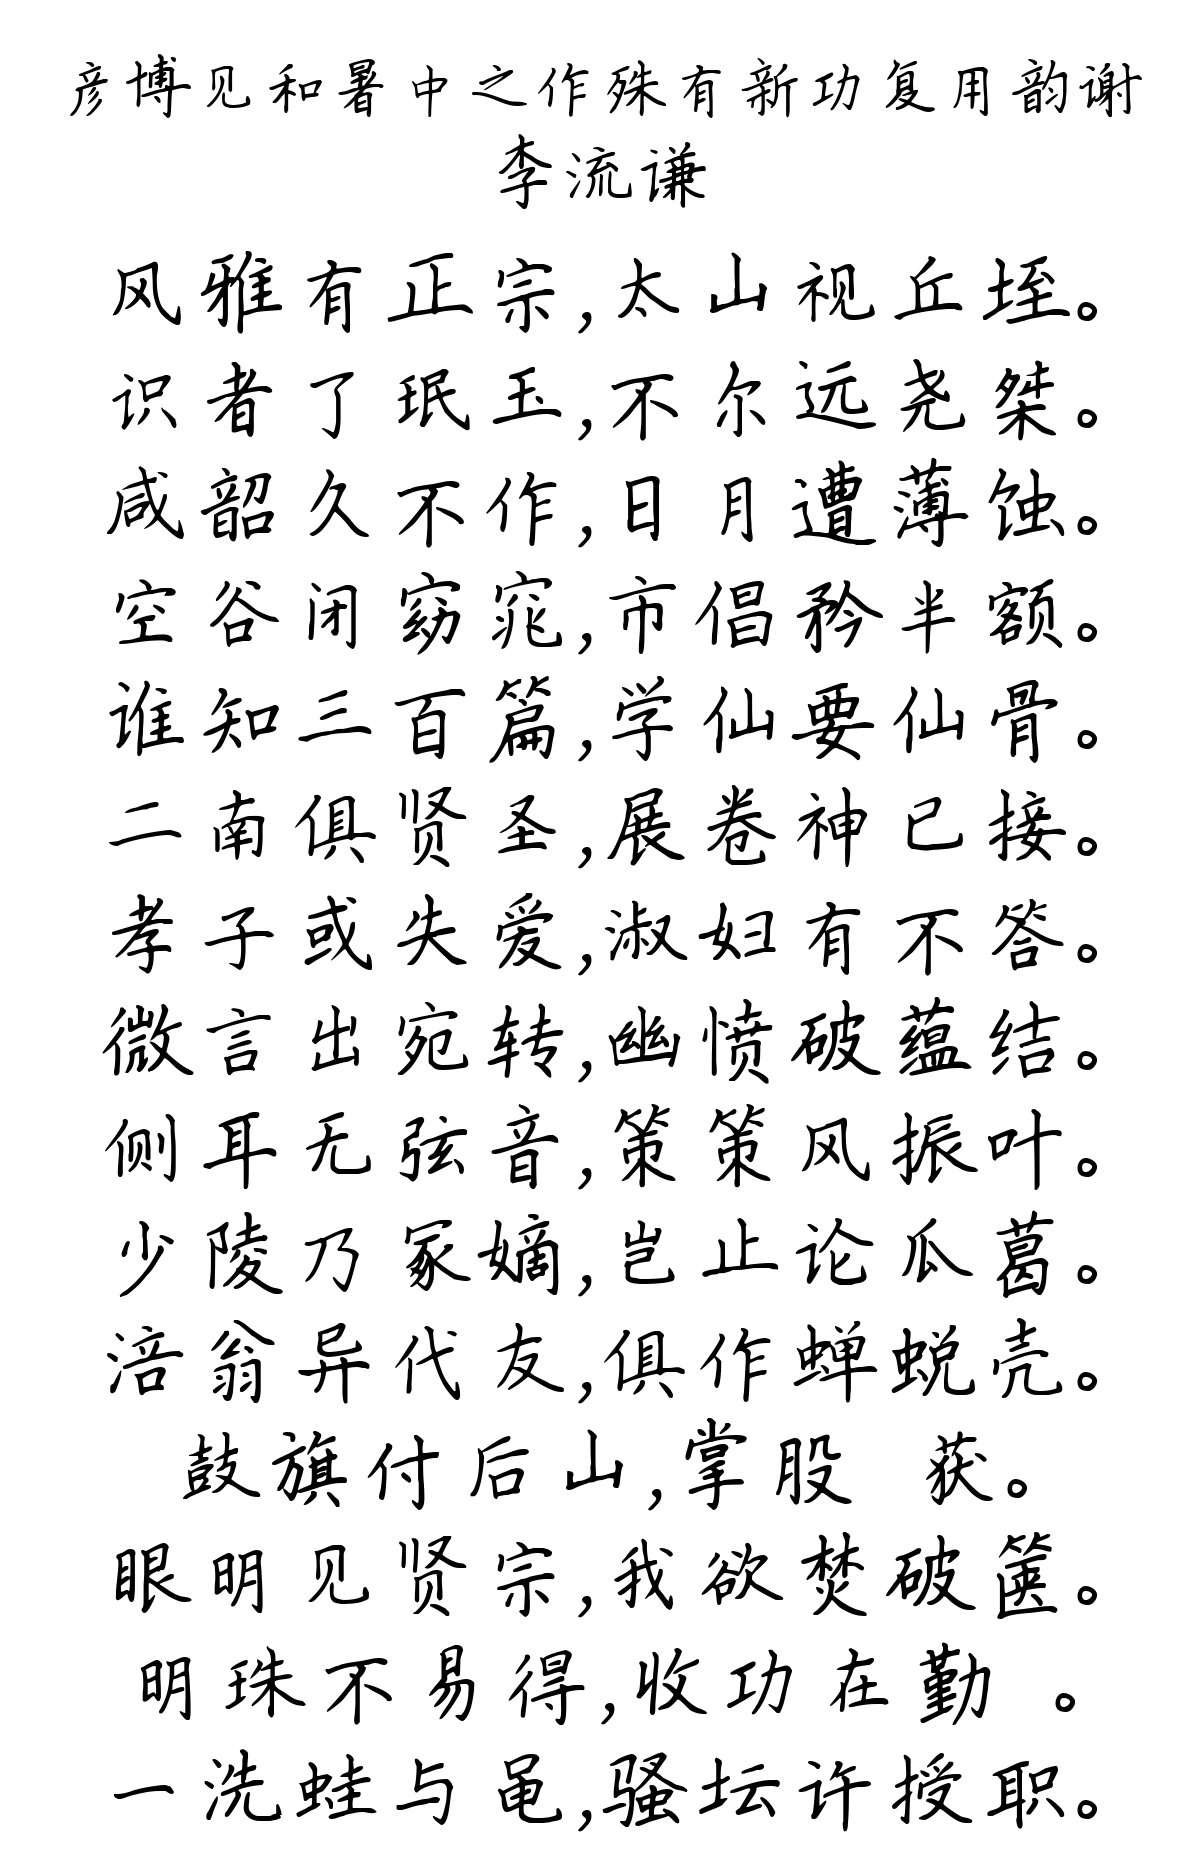 彦博见和暑中之作殊有新功复用韵谢
李流谦
风雅有正宗,太山视丘垤。
识者了珉玉,不尔远尧桀。
咸韶久不作,日月遭薄蚀。
空谷闭窈窕,市倡矜半额。
谁知三百篇,学仙要仙骨。
二南俱贤圣,展卷神已接。
孝子或失爱,淑妇有不答。
微言出宛转,幽愤破蕴结。
侧耳无弦音,策策风振叶。
少陵乃冢嫡,岂止论瓜葛。
涪翁异代友,俱作蝉蜕壳。
鼓旗付后山,掌股 获。
眼明见贤宗,我欲焚破箧。
明珠不易得,收功在勤 。
一洗蛙与黾,骚坛许授职。